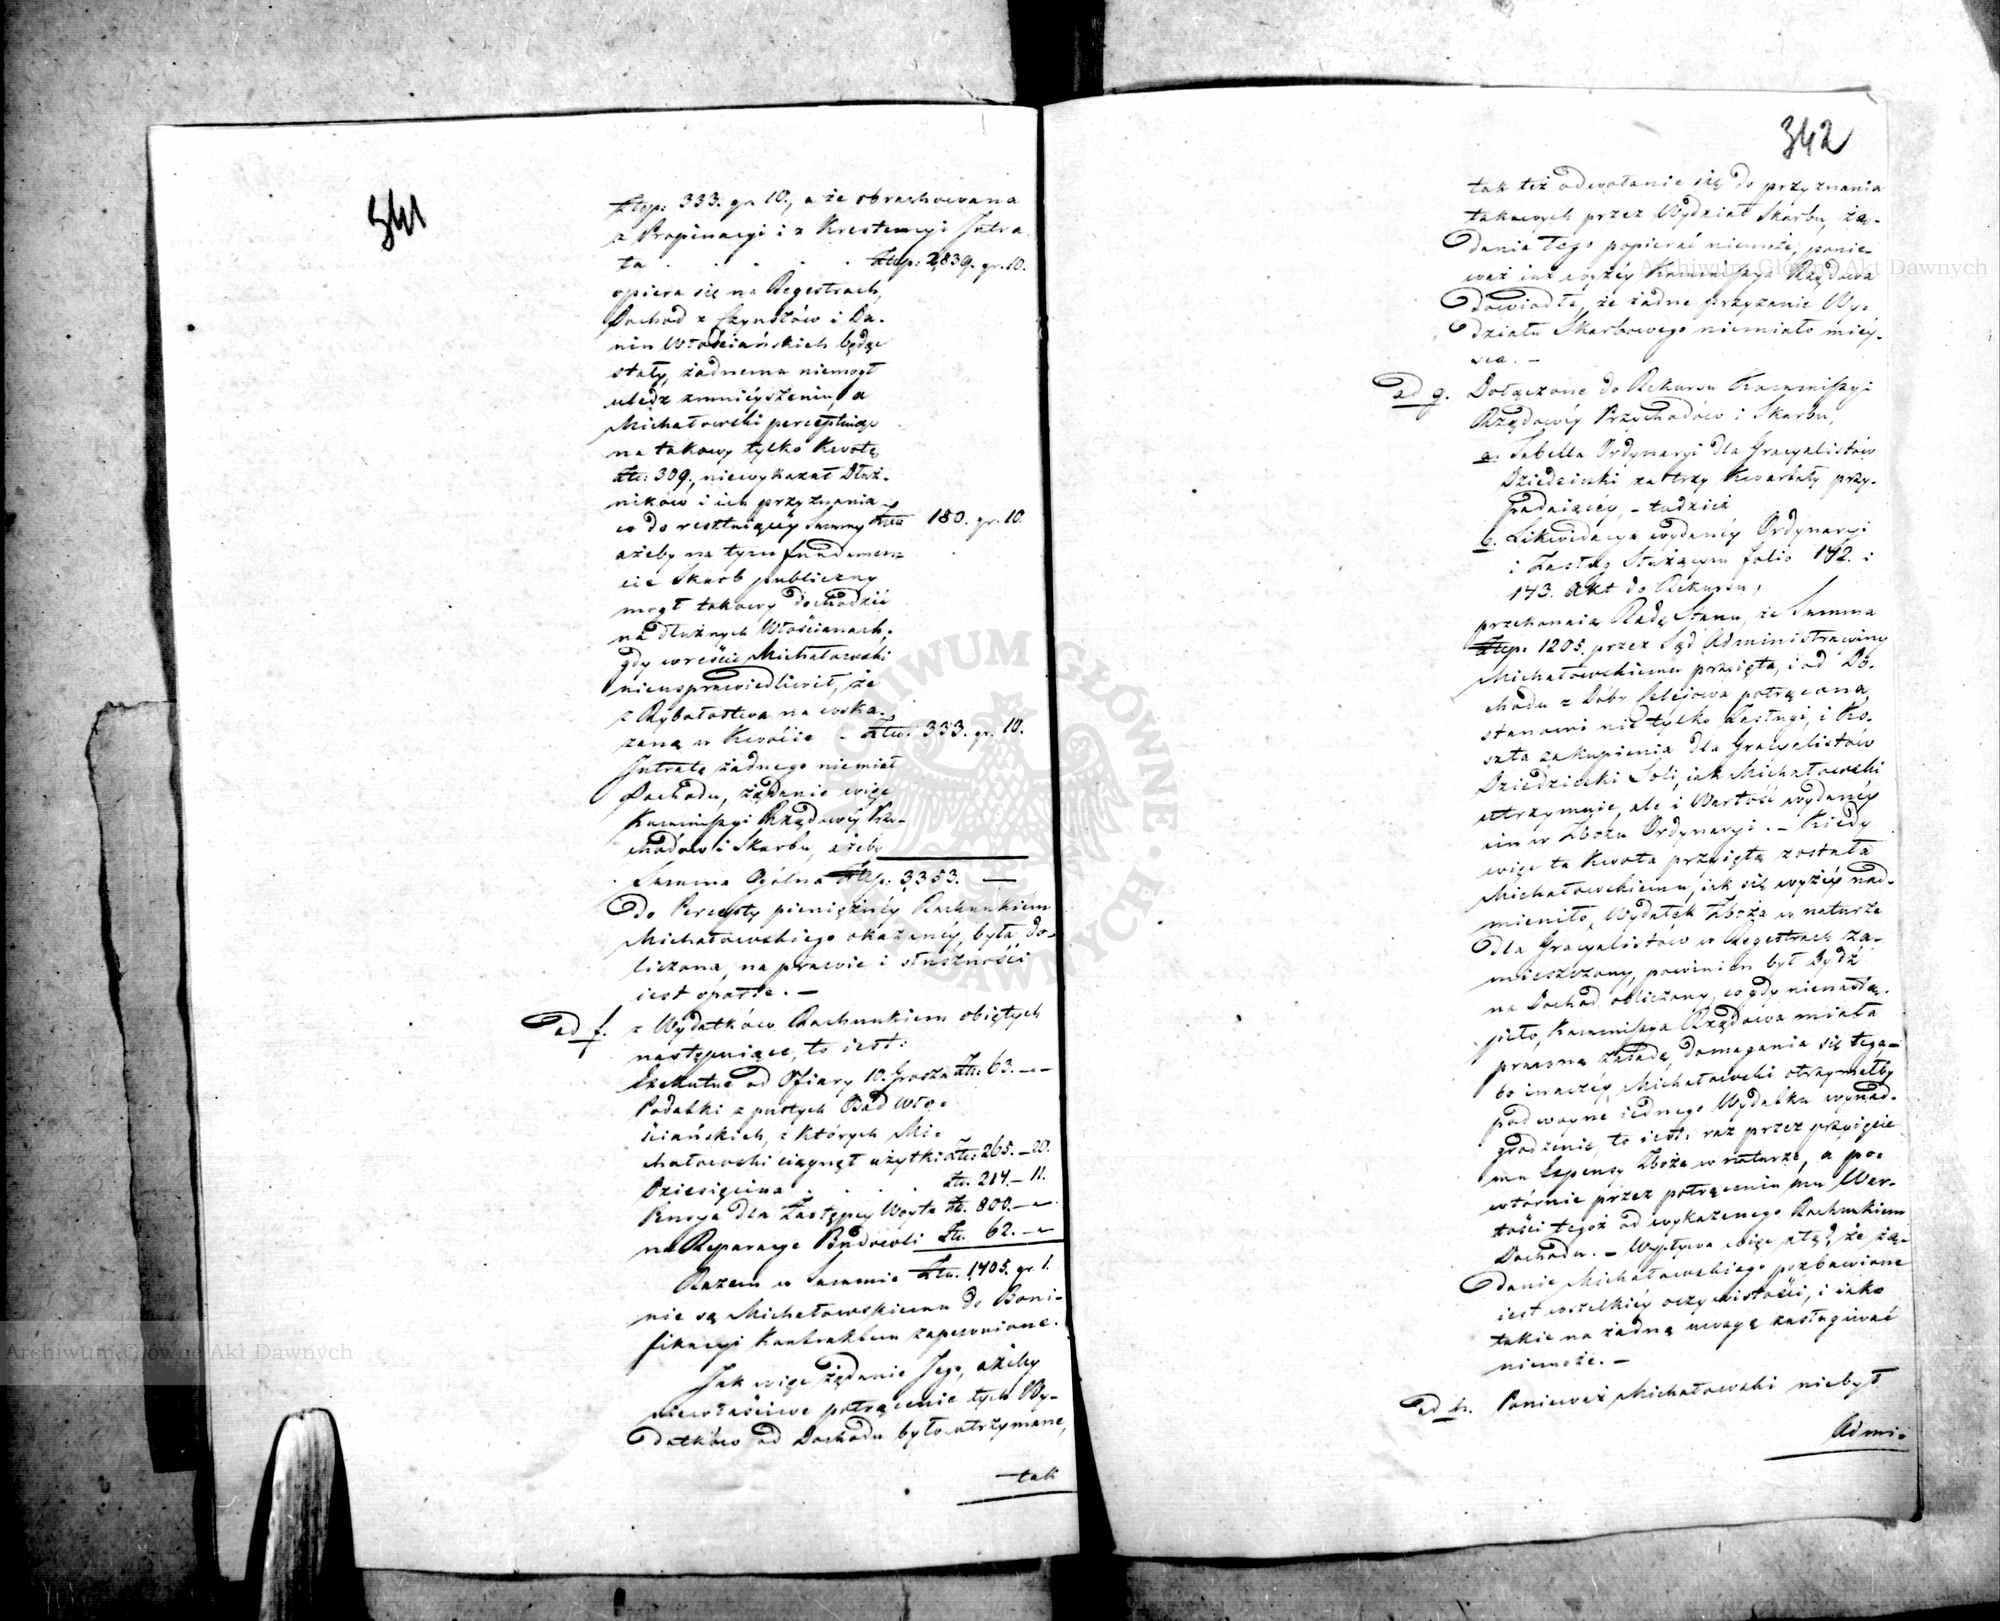 341
Złtp: 333. gr. 10., a że obrachowana
z Propinacyi i z Krestencyi Intra
ta . . . . . Złtp: 2,839. gr. 10.
opiera się na Regestrach,
Dochod z Czynszów i Da-
nin Włościańskich będąc
stały, żadnemu niemogł
uledz zmnieyszeniu, a
Michałowski percepturiąc
na takowy tylko Kwotę
Złt: 309., niewykazał Dłuż-
ników i ich przyznania
co do restuiącey Summy Złt: 180. gr. 10.
ażeby na tym fundamen-
cie Skarb publiczny
mogł takowy dochodzić
na dłużnych Włościanach;
gdy wreście Michałowski
nieusprawiedliwił, że
z Rybołostwa na wska-
zaną w Kwocie - Złt: 333. gr. 10.
Intratę żadnego niemiał
Dochodu, żądanie więc
Kommissyi Rządowéy Przy-
chodów i Skarbu, ażeby
Summa Ogólna Złtp: 3,353. —
do Percepty pieniężnéy Rachunkiem
Michałowskiego okazanéy, była do-
liczona, na prawie i słuszności
iest oparte. —
ad f. z Wydatków Rachunkiem obiętych
następuiące, to iest:
Exekutne od Ofiary 10. Grosza Złt: 63. — —
Podatki z pustych Osad Wło-
ściańskich, z których Mi-
chałowski ciągnął użytki Złt: 265. — 20.
Dziesięcina . . . . Złt. 214. — 11.
Pensya dla Zastępcy Woyta Zł. 800. — —
na Reparacye Budowli Złt. 62. — —
Razem w summie Złt. 1,405. gr. 1.
nie są Michałowskiemu do Boni-
fikacyi Kontraktem zapewnione.
Jak więc żądanie Jego, ażeby
niewłaściwe potrącenie tych Wy-
datków od Dochodu było utrzymane,
tak
342
tak też odwołanie się do przyznania
takowych przez Wydział Skarbu, żą-
dania tego popierać niemoże; ponie-
waż iuż wyżéy Kommissya Rządowa
dowiodła, że żadne przyznanie Wy-
działu Skarbowego niemiało miéy-
sca. —
ad g. Dołączone do Rekursu Kommissyi
Rządowéy Przychodów i Skarbu,
a. Tabella Ordynaryi dla Gracyalistów
Dziedzicki za trzy Kwartały przy-
padaiącéy, - tudzież
b. Likwidacya wydanéy Ordynaryi
i Zasług Służącym folio 142. i
143. Akt do Rekursu,
przekonaią Radę Stanu, że Summa
Złtp. 1205. przez Sąd Administracyiny
Michałowskiemu przyięta, i od Do-
chodu z Dóbr potrącona,
stanowi nie tylko Zasługi, i Ko-
szta zakupienia dla Gracyalistów
Dziedzicki Soli, iak Michałowski
utrzymuie, ale i Wartość wydanéy
im w Zbożu Ordynaryi. — Kiedy
więc ta Kwota przyięta została
Michałowskiemu, iak się wyżéy nad-
mieniło, Wydatek Zboża w naturze
dla Gracyalistów w Regestrach za-
mieszczony, powinien był bydź
na Dochod obliczony, co gdy nienastą-
piło, Kommissya Rządowa miała
prawną zasadę, domagania się tego —
bo inaczéy, Michałowski otrzymałby
podwoyne iednego Wydatku wynad-
grodzenie, to iest: raz przez przyięcie
mu Expensy Zboża w naturze, a po-
wtórnie przez potrącenie mu War-
tości tegoż od wykazanego Rachunkiem
Dochodu. — Wypływa więc ztąd, że żą-
danie Michałowskiego pozbawione
iest wszelkiéy oczywistości, i iako
takie na żadną uwagę zasługiwać
niemoże. —
ad h. Ponieważ Michałowski niebył
Admi-
Archiwum Główne Akt Dawnych
Archiwum Główne Akt Dawnych
ARCHIWUM GŁÓWNE AKT DAWNYCH